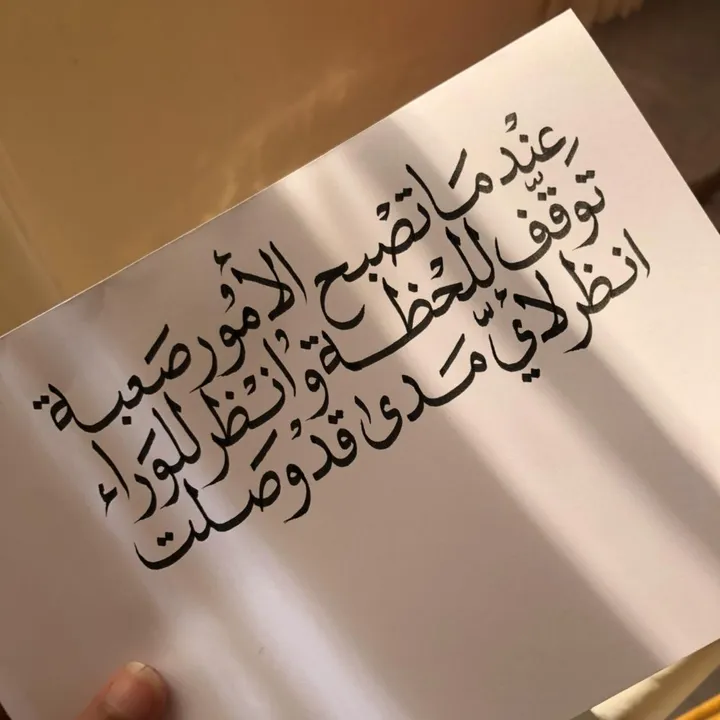 عِنْدمَا تصْبح الأمُور صَعبة
توقّف للحْظة وانْظر للوَراء
انظر لأيّ مَدىٰ قد وصَلت